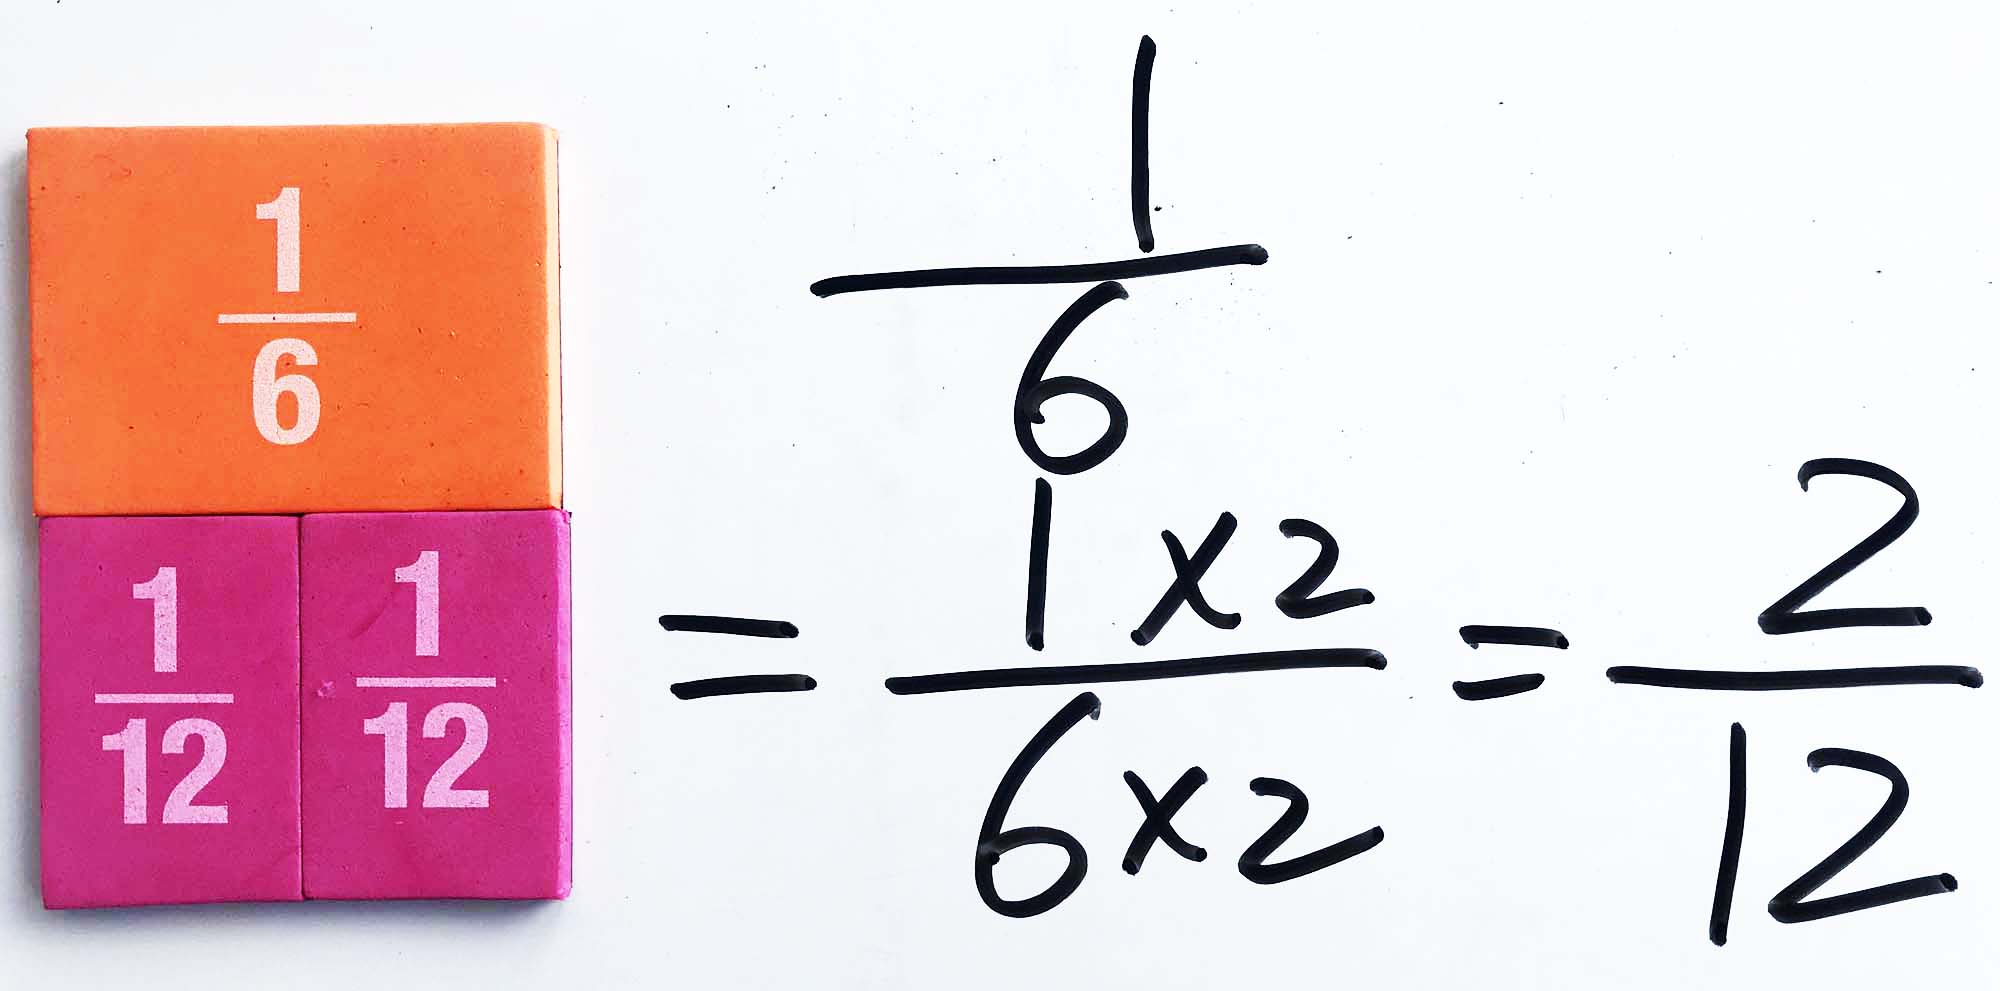 1/6
1/12 1/12
1/6
= 1×2/6×2 = 2/12